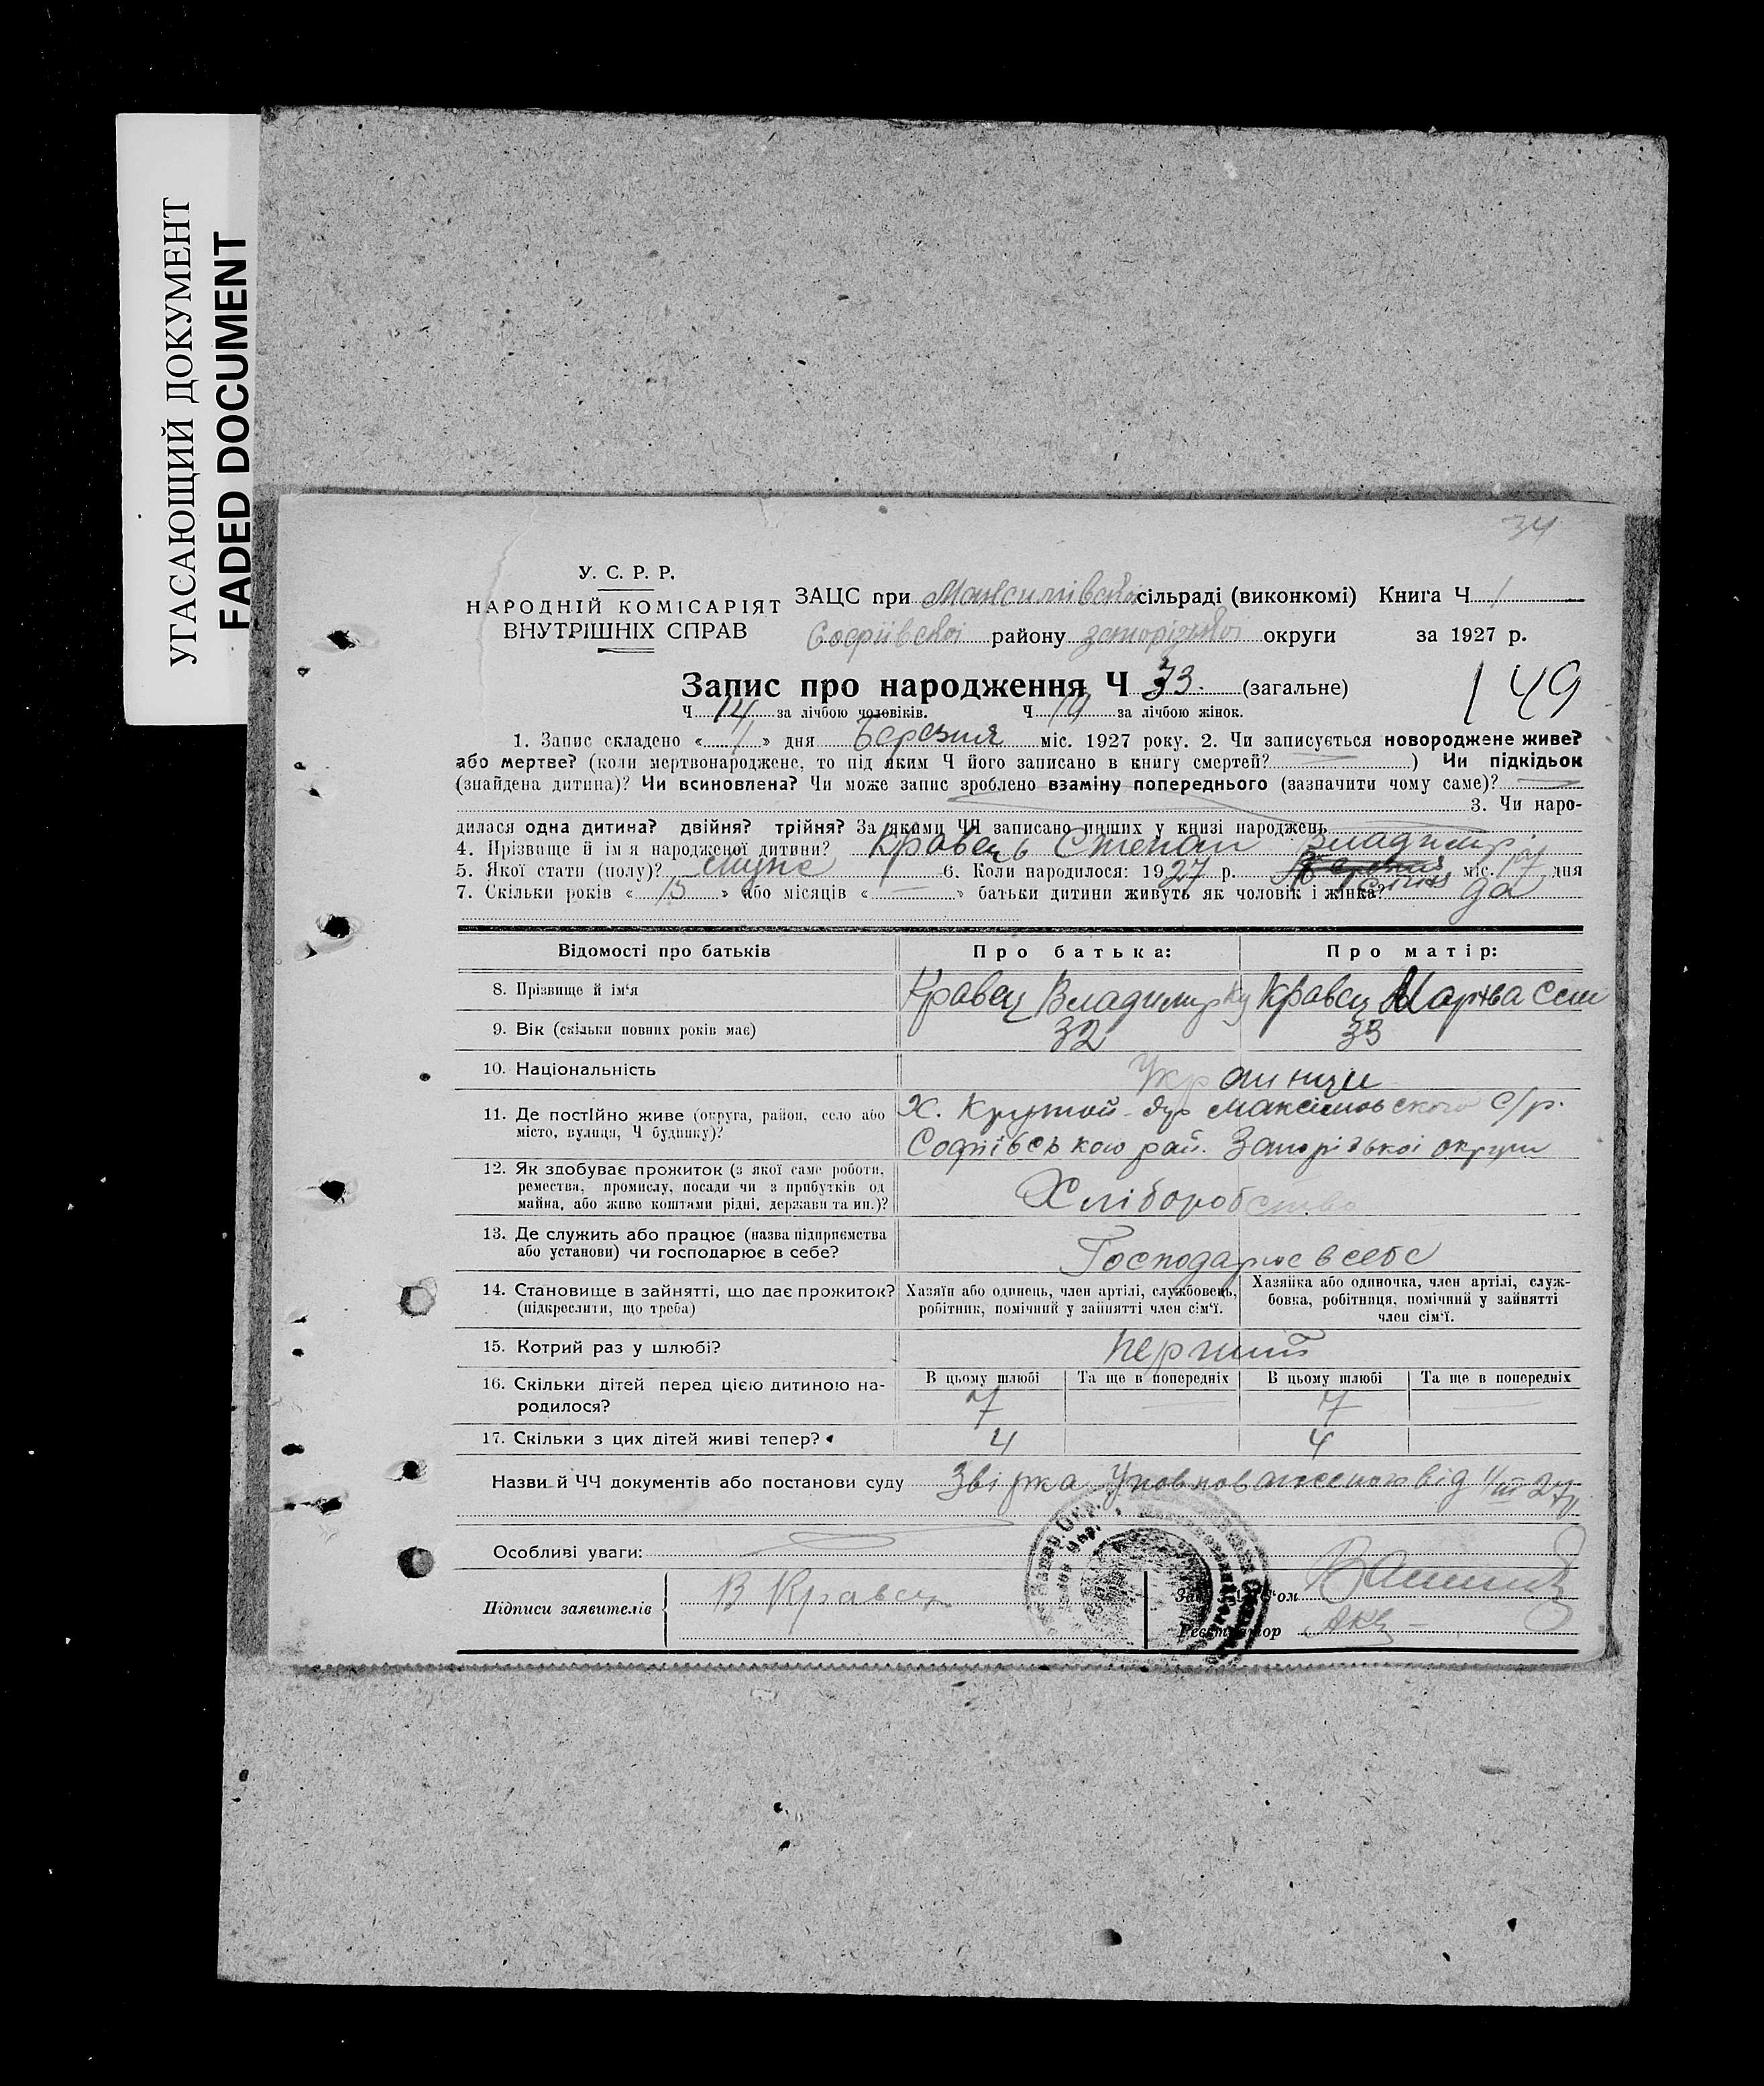 УГАСАЮЩИЙ ДОКУМЕНТ
FADED DOCUMENT
34
У. С. Р. Р.
НАРОДНІЙ КОМІСАРІЯТ
ВНУТРІШНІХ СПРАВ
ЗАЦС при сільраді (виконкомі) Книга Ч 1
Софіївської району округи за 1927 р.
Запис про народження Ч 33. (загальне)
149
Ч 14 за лічбою чоловіків. Ч 19 за лічбою жінок.
1. Запис складено « 1 » дня Березня міс. 1927 року. 2. Чи записується новороджене живе?
або мертве? (коли мертвонароджене, то під яким Ч його записано в книгу смертей? —) Чи підкідьок
(знайдена дитина)? Чи всиновлена? Чи може запис зроблено взаміну попереднього (зазначити чому саме)? —
3. Чи наро-
дилася одна дитина? двійня? трійня? За якими ЧЧ записано инших у книзі народжень
4. Прізвище й ім'я народженої дитини? Кравець Степан Владимир
5. Якої стати (полу)? 6. Коли народилося: 1927 р. міс. дня
7. Скільки років « 13 » або місяців « — » батьки дитини живуть як чоловік і жінка? да
Відомості про батьків Про батька: Про матір:
8. Прізвище й ім'я Кравец Владимир Кравец Сем
9. Вік (скільки повних років має) 32 33
10. Національність Украинци
11. Де постійно живе (округа, район, село або
місто, вулиця, Ч будинку)?
Х. Крутой Максимовского С/р.
Софіївського рай. Запорізької округи
12. Як здобуває прожиток (з якої саме роботи,
ремества, промислу, посади чи з прибутків од
майна, або живе коштами рідні, держави та ин.)?
Хліборобство
13. Де служить або працює (назва підприємства
або установи) чи господарює в себе?
Господарює в себе
14. Становище в зайнятті, що дає прожиток?
(підкреслити, що треба)
Хазяїн або одинець, член артілі, службовець,
робітник, помічний у зайнятті член сім'ї.
Хазяйка або одиночка, член артілі, служ-
бовка, робітниця, помічний у зайнятті
член сім'ї.
15. Котрий раз у шлюбі?
16. Скільки дітей перед цією дитиною на-
родилося?
В цьому шлюбі Та ще в попередніх В цьому шлюбі Та ще в попередніх
7 — 7 —
17. Скільки з цих дітей живі тепер? 4 4
Назви й ЧЧ документів або постанови суду Звірка Уповноваженого від 1/III 27
Особливі уваги:
Підписи заявителів В Кравец
Реєстратор